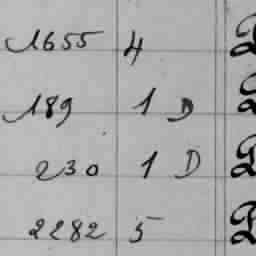 1655 4
189 1 D
230 1 D
2282 5